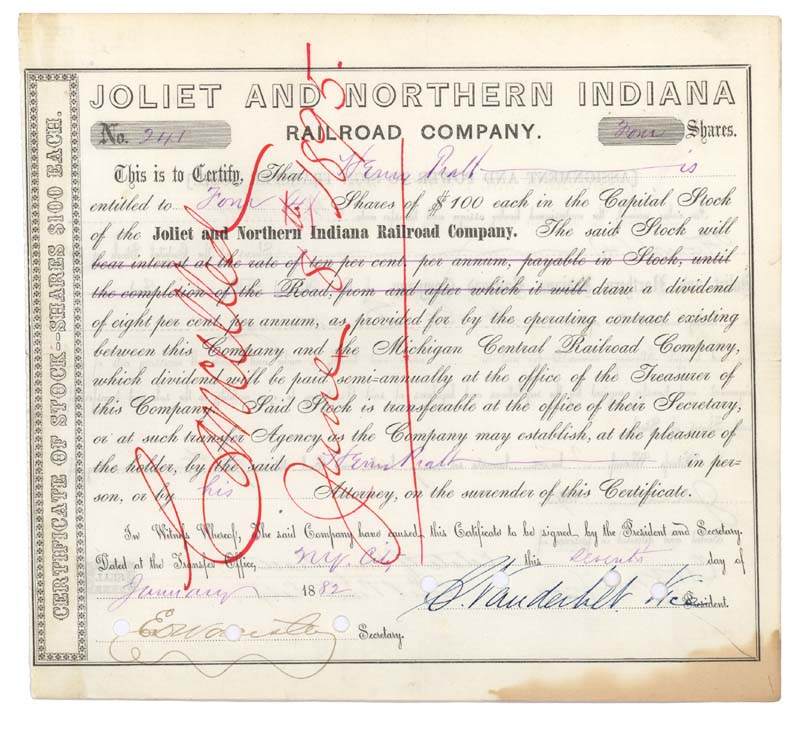 JOLIET AND NORTHERN INDIANA
No. 241 RAILROAD COMPANY. Four Shares.
This is to Certify, That Henry Pratt is
entitled to Four (4) Shares of $100 each in the Capital Stock
of the Joliet and Northern Indiana Railroad Company. The said Stock will
bear interest at the rate of ten per cent. per annum, payable in Stock, until
the completion of the Road, from and after which it will draw a dividend
of eight per cent. per annum, as provided for by the operating contract existing
between this Company and the Michigan Central Railroad Company,
which dividend will be paid semi=annually at the office of the Treasurer of
this Company. Said Stock is transferable at the office of their Secretary,
or at such transfer Agency as the Company may establish, at the pleasure of
the holder, by the said Henry Pratt in per=
son, or by his Attorney, on the surrender of this Certificate.
In Witness Whereof, The said Company have caused this Certificate to be signed by the President and Secretary.
Dated at the Transfer Office, N.Y. City this Seventh day of
January 1882
C. Vanderbilt President.
E. D. Worcester Secretary.
CERTIFICATE OF STOCK--SHARES $100 EACH.
Cancelled
June 5th 1895.